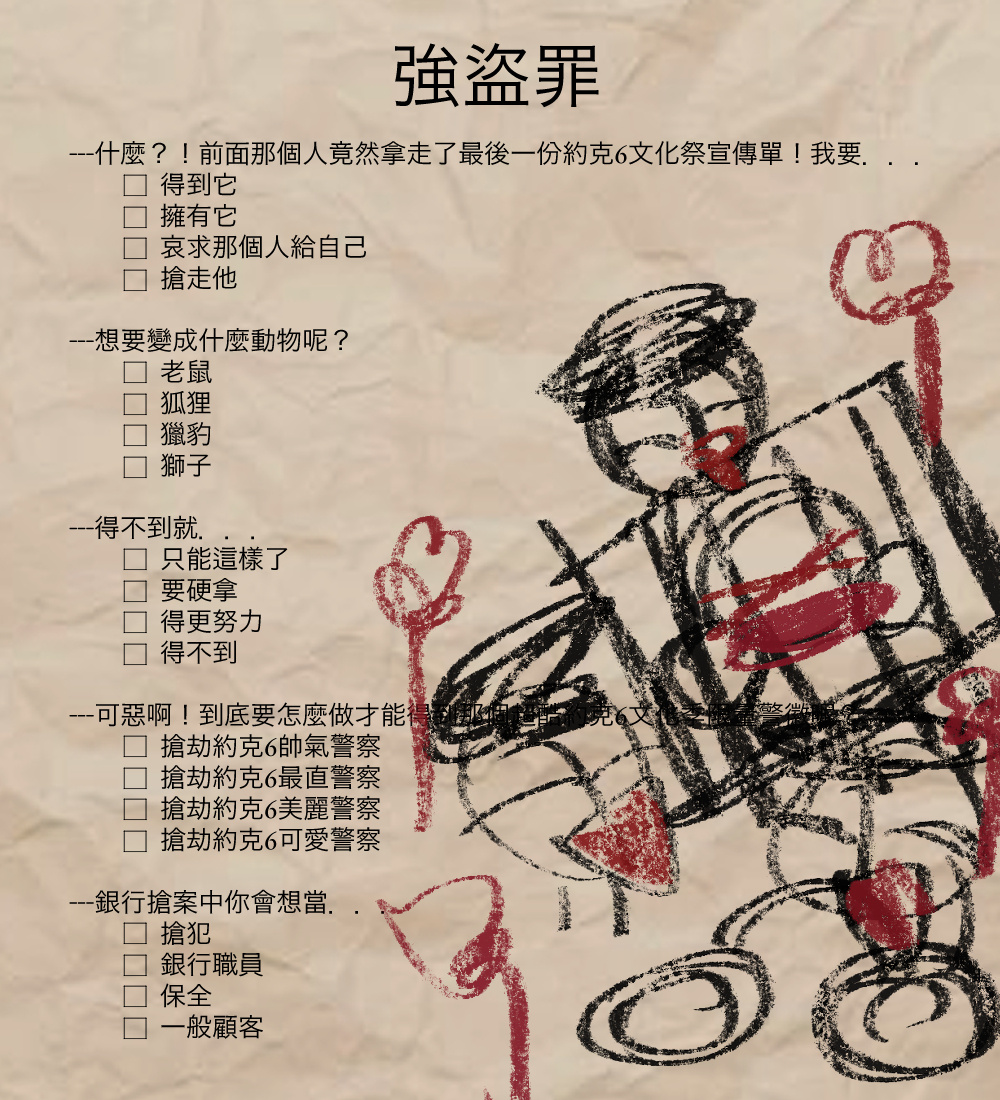 強盜罪
---什麼？！前面那個人竟然拿走了最後一份約克6文化祭宣傳單！我要. . .
□ 得到它
□ 擁有它
□ 哀求那個人給自己
□ 搶走他
---想要變成什麼動物呢？
□ 老鼠
□ 狐狸
□ 獵豹
□ 獅子
---得不到就. . .
□ 只能這樣了
□ 要硬拿
□ 得更努力
□ 得不到
---可惡啊！到底要怎麼做才能得到那個超酷約克6文化祭限量警徽呢？
□ 搶劫約克6帥氣警察
□ 搶劫約克6最直警察
□ 搶劫約克6美麗警察
□ 搶劫約克6可愛警察
---銀行搶案中你會想當. . .
□ 搶犯
□ 銀行職員
□ 保全
□ 一般顧客